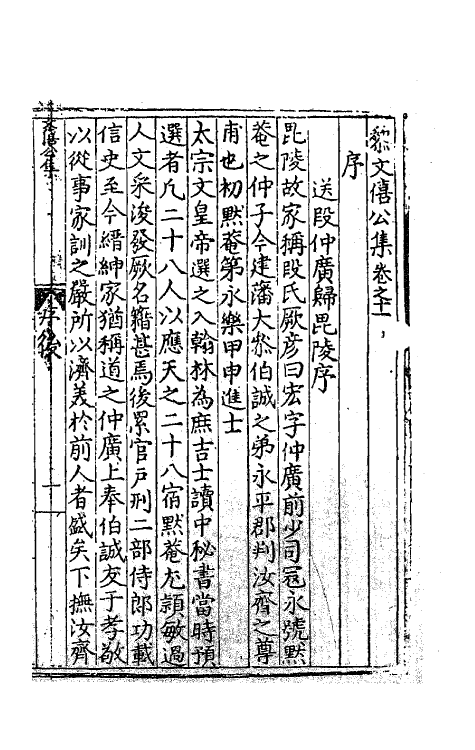 黎文僖公集卷之十一
序
送段仲廣歸毘陵序
毘陵故家稱段氏厥彥曰宏字仲廣前少司寇永號默
菴之仲子今建藩大叅伯誠之弟永平郡判汝齊之尊
甫也初默菴第永樂甲申進士
太宗文皇帝選之入翰林為庶吉士讀中秘書當時預
選者凢二十八人以應天之二十八宿默菴尤頴敏過
人文采浚發厥名籍甚焉後累官戶刑二部侍郎功載
信史至今縉紳家猶稱道之仲廣上奉伯誠友于孝敬
以從事家訓之嚴所以濟美於前人者盛矣下撫汝齊
文僖公集
序後
十